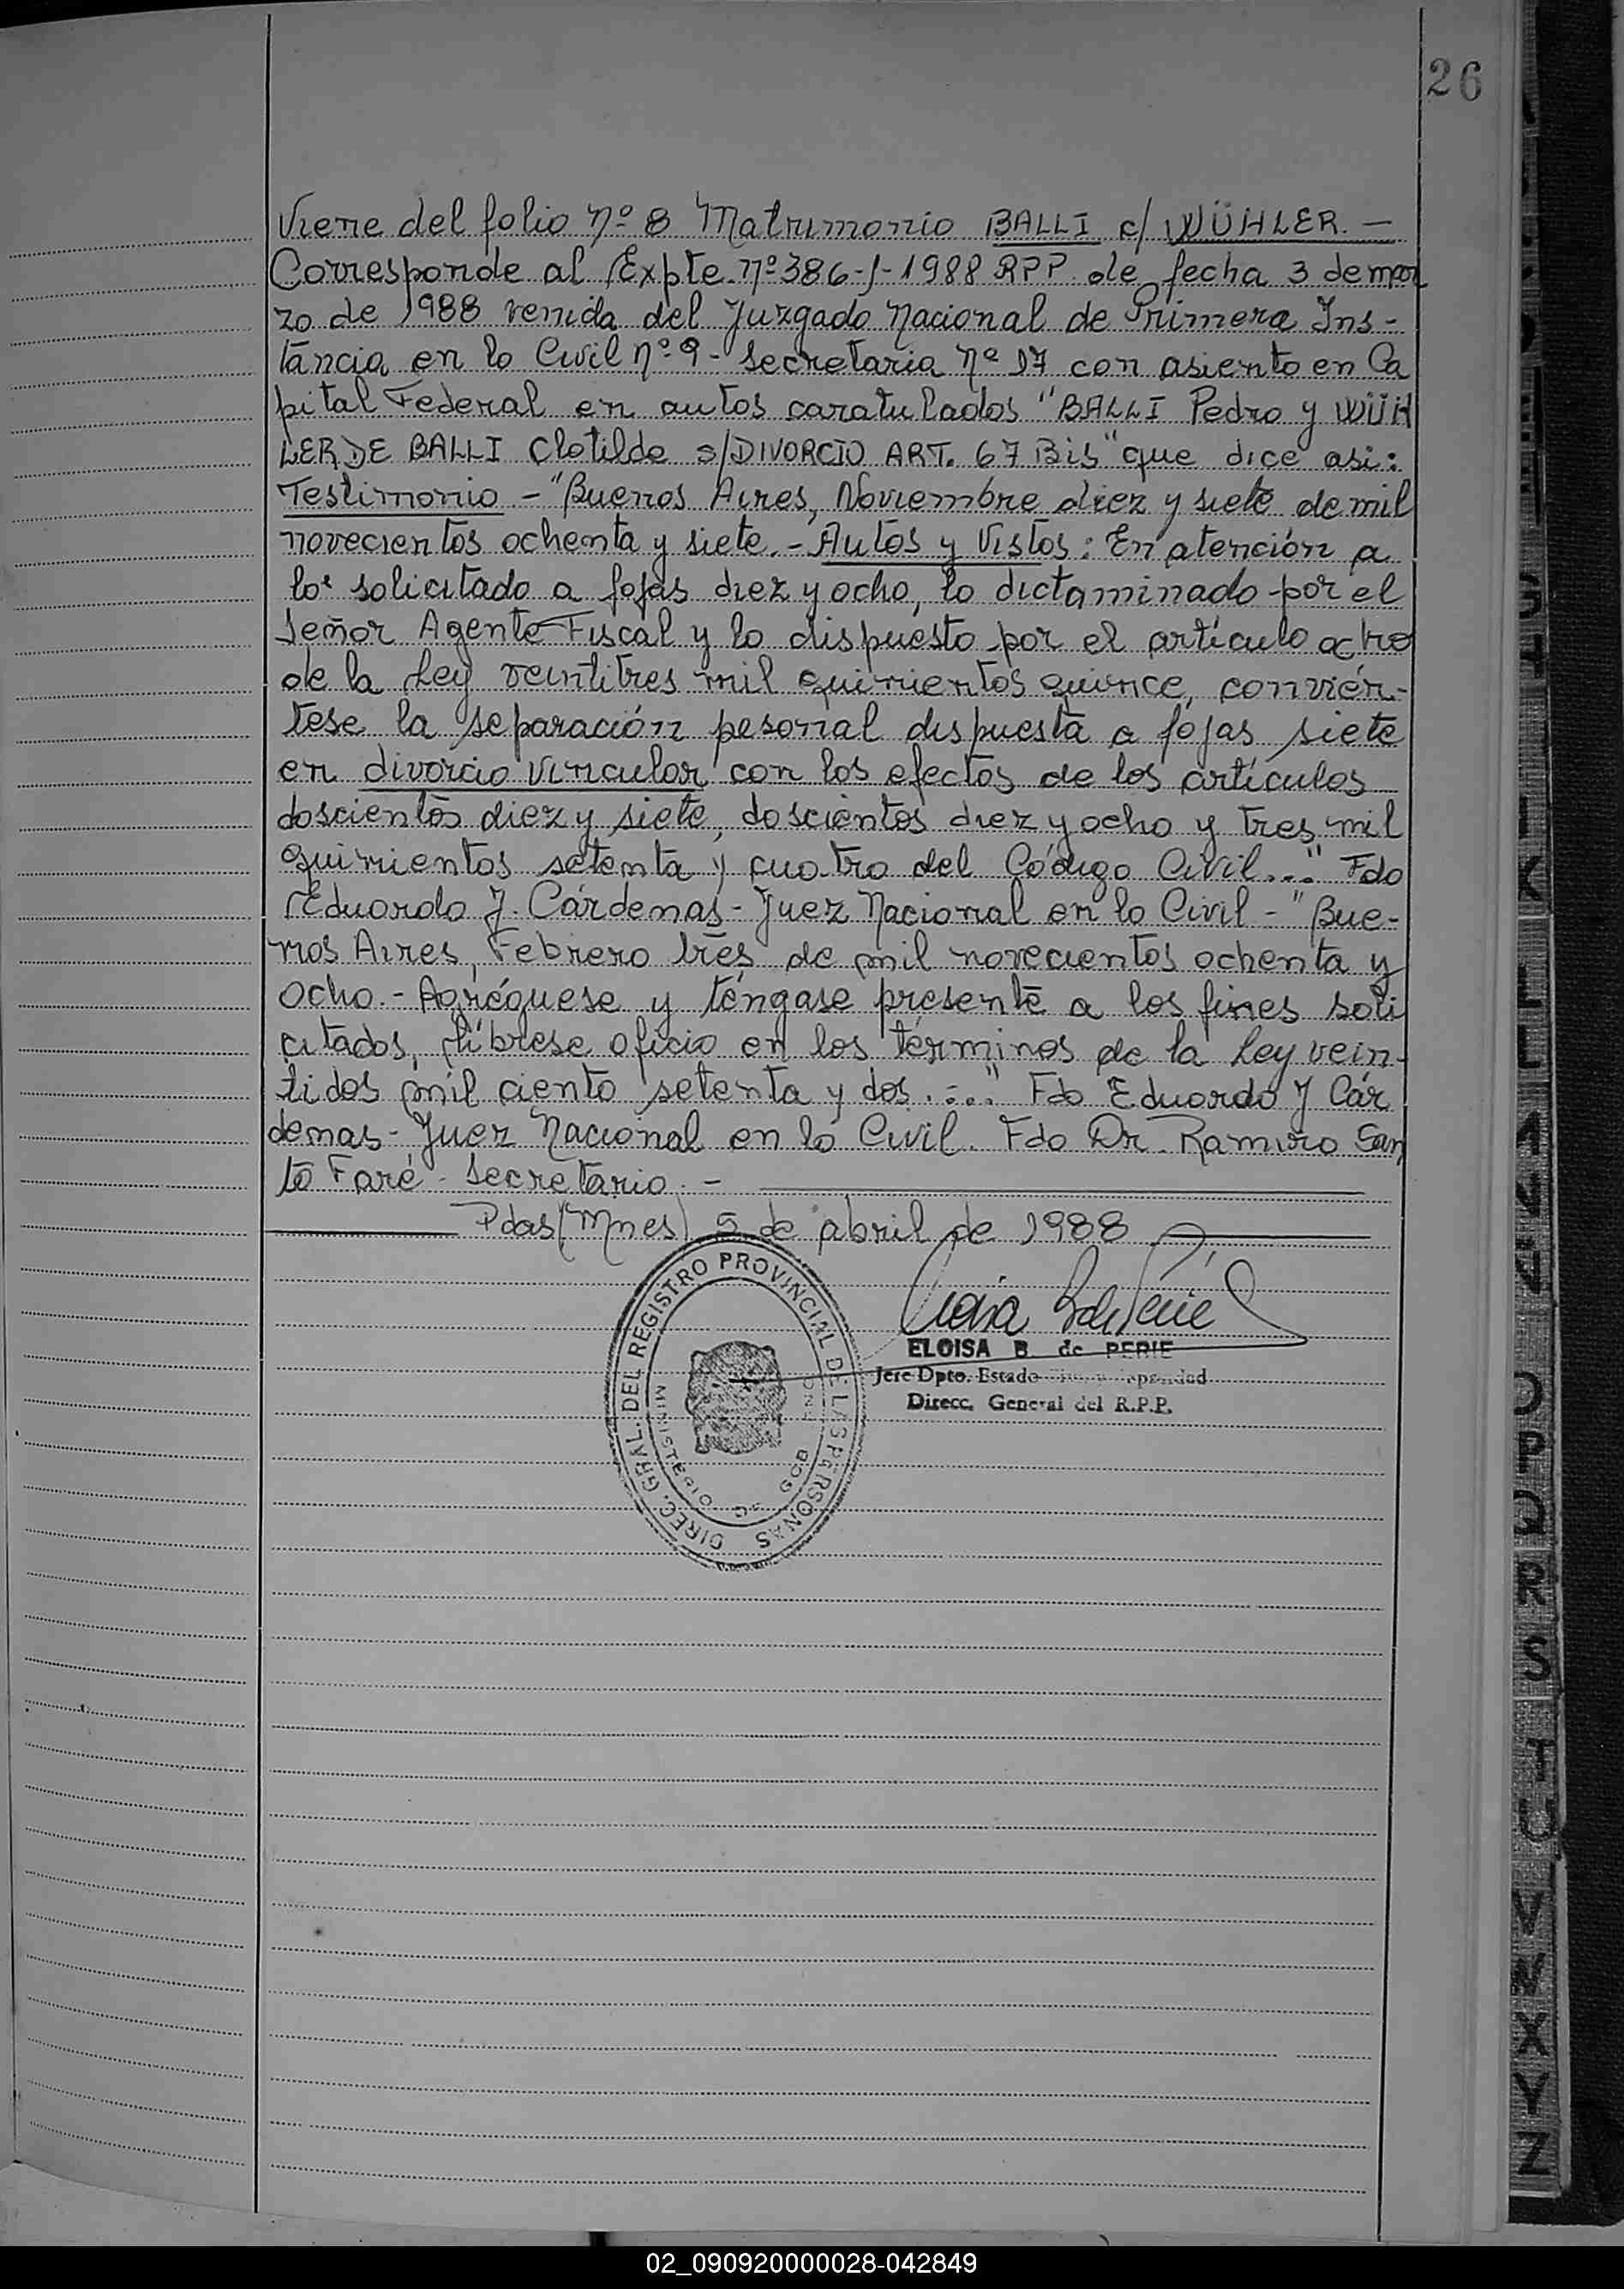 26
Viene del folio nº 8 Matrimonio BALLI c/ WÜHLER. —
Corresponde al Expte. nº 386-J-1988 RPP de fecha 3 de mar
zo de 1988 venida del Juzgado Nacional de Primera Ins-
tancia en lo Civil nº 9 - Secretaria nº 17 con asiento en Ca
pital Federal en autos caratulados "BALLI Pedro y WÜH
LER DE BALLI Clotilde s/DIVORCIO ART. 67 Bis" que dice asi:
Testimonio - "Buenos Aires, Noviembre diez y siete de mil
novecientos ochenta y siete. - Autos y Vistos: En atención a
lo solicitado a fojas diez y ocho, lo dictaminado por el
Señor Agente Fiscal y lo dispuesto por el artículo ocho
de la Ley veintitres mil quinientos quince, conviér-
tese la separación pesonal dispuesta a fojas siete
en divorcio vincular con los efectos de los artículos
doscientos diez y siete, doscientos diez y ocho y tres mil
quinientos setenta y cuatro del Código Civil..." Fdo
Eduardo J. Cárdenas - Juez Nacional en lo Civil - "Bue-
nos Aires, Febrero tres de mil novecientos ochenta y
ocho. - Agréguese y téngase presente a los fines soli
citados, líbrese oficio en los términos de la Ley vein-
tidos mil ciento setenta y dos...." Fdo Eduardo J Cár
denas - Juez Nacional en lo Civil. Fdo Dr. Ramiro San
to Faré - Secretario. -
Pdas (Mnes) 5 de abril de 1988
DIREC. GRAL. DEL REGISTRO PROVINCIAL DE LAS PERSONAS
MINISTERIO DE GOB
ELOISA B. de PERIE
Jefe Dpto. Estado
Direcc. General del R.P.P.
A
S
K
L
O
P
Q
R
S
T
U
V
W
X
Y
Z
02_090920000028-042849